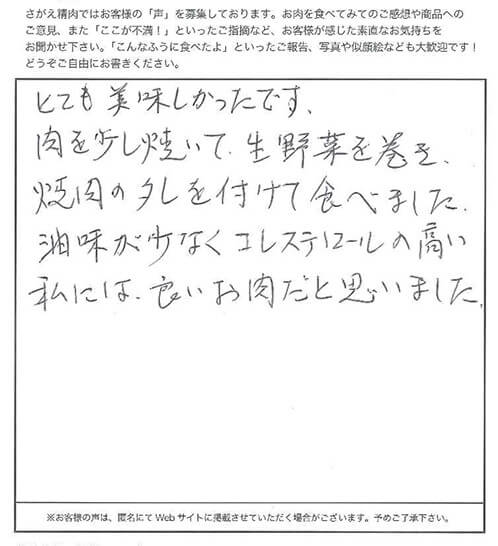 さがえ精肉ではお客様の「声」を募集しております。お肉を食べてみてのご感想や商品への
ご意見、また「ここが不満！」といったご指摘など、お客様が感じた素直なお気持ちを
お聞かせ下さい。「こんなふうに食べたよ」といったご報告、写真や似顔絵なども大歓迎です！
どうぞご自由にお書きください。
とても美味しかったです、
肉を少し焼いて、生野菜を巻き、
焼肉のタレを付けて食べました、
油味が少なくコレステロールの高い
私には、良いお肉だと思いました。
※お客様の声は、匿名にてWebサイトに掲載させていただく場合がございます。予めご了承下さい。